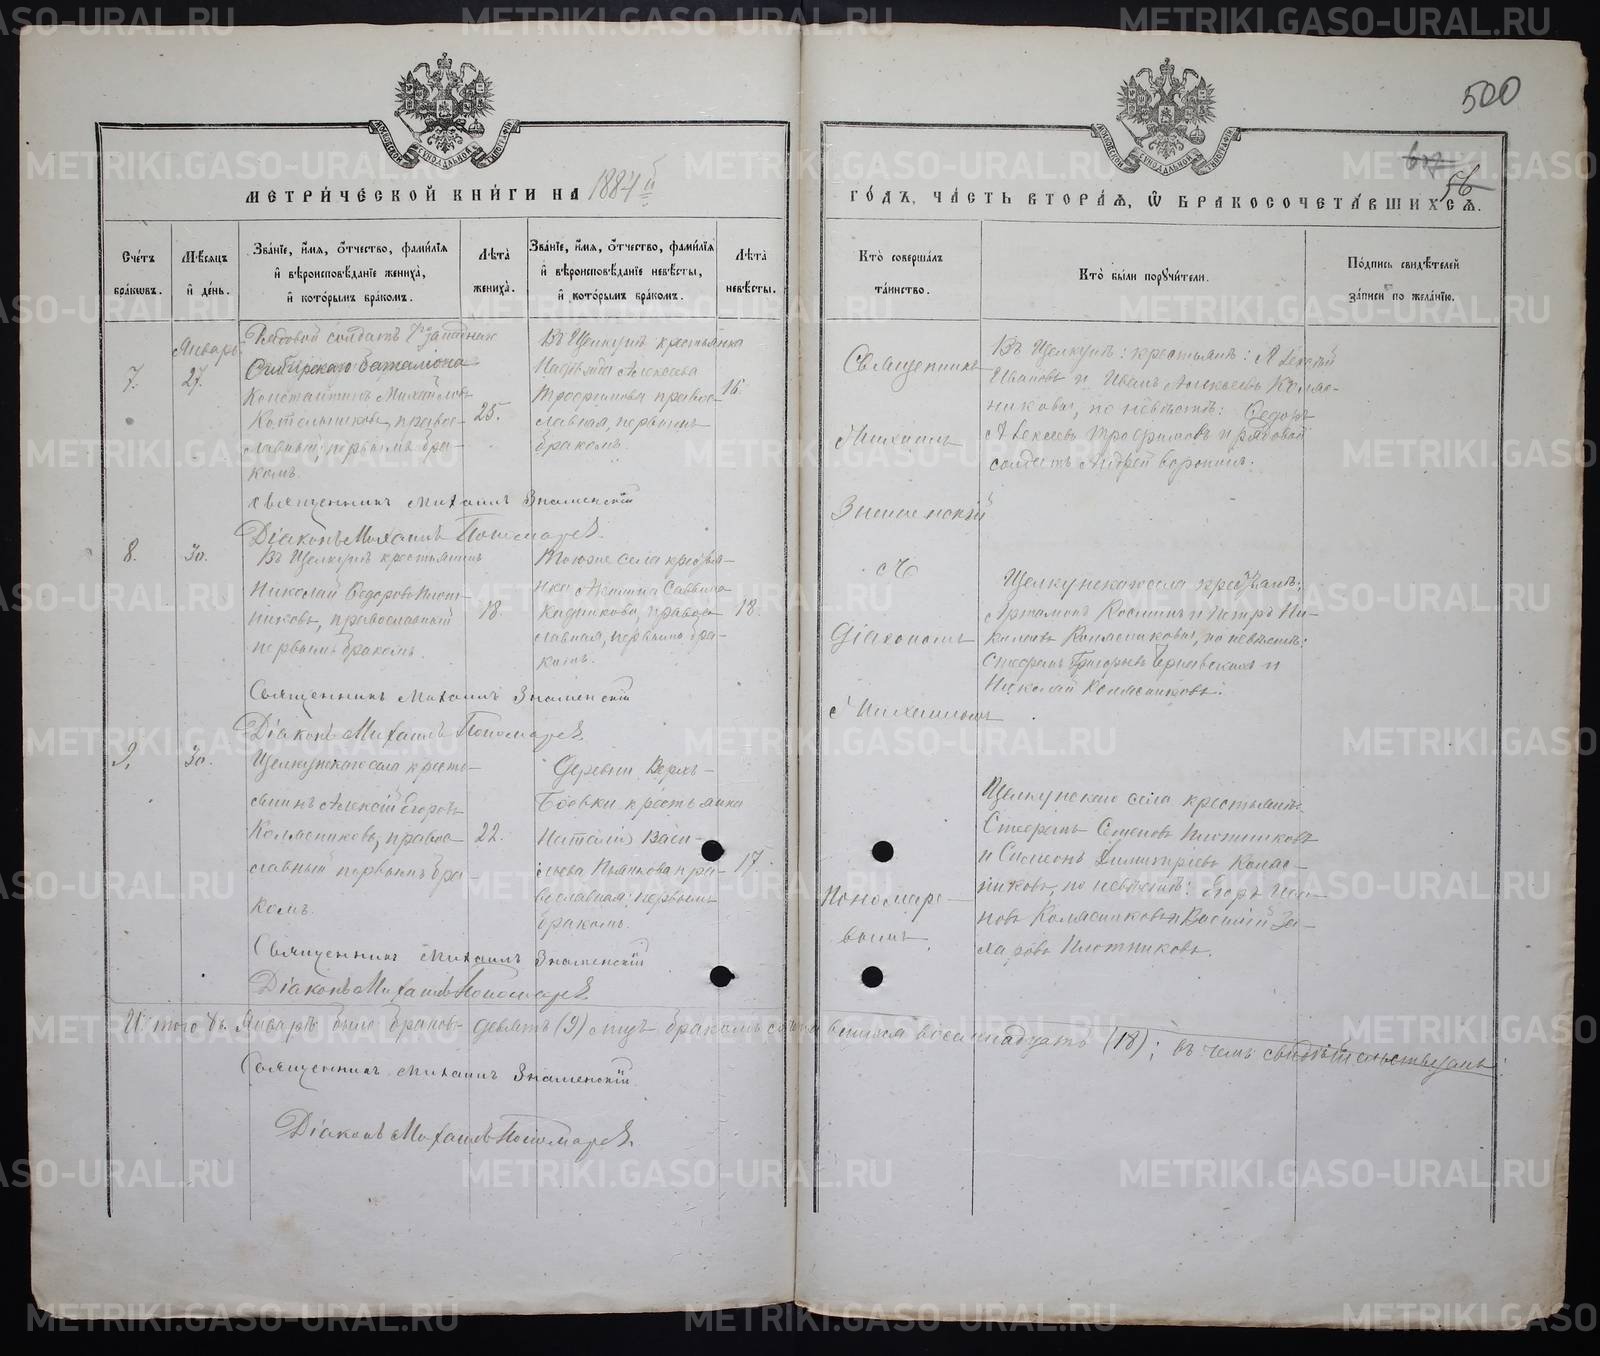 500
56
МЕТРИ́ЧЕСКОЙ КНИ́ГИ НА 1884й
ГО́ДЪ, ЧА́СТЬ ВТОРА́Ѧ, Ѿ БРАКОСОЧЕТА́ВШИХСѦ.
Сче́тъ бра́кωвъ.
Мѣ́сяцъ и҆ де́нь.
Зва́нїе, и҆́мѧ, ѻ҆́тчество, фами́лїѧ
и҆ вѣроисповѣ́данїе жениха̀,
и҆ кото́рымъ бра́комъ.
Лѣ́та жениха̀.
Зва́нїе, и҆́мѧ, ѻ҆́тчество, фами́лїѧ
и҆ вѣроисповѣ́данїе невѣ́сты,
и҆ кото́рымъ бра́комъ.
Лѣ́та невѣ́сты.
Кто̀ соверша́лъ
та́инство.
Кто̀ бы́ли порꙋчи́тели.
По́дпись свидѣ́телей
за́писи по жела́нїю.
Январь
7.
27.
Рядовой солдатъ
Сибирскаго баталіона
Константинъ Михайловъ
Котельниковъ, право-
славный, первымъ бра-
комъ.
25.
Въ Щелкунѣ крестьянка
Надежда Алексѣева
Трофимова право-
славная, первымъ
бракомъ.
16.
Священникъ
Михаилъ
Знаменскій
съ
Діакономъ
Михаиломъ
Пономаре-
вымъ.
Въ Щелкунѣ: крестьянѣ: Алексѣй
Ивановъ и Иванъ Алексѣевъ Колмо-
никовы, по невѣстѣ: Ѳедоръ
Алексѣевъ Трофимовъ и рядовой
солдатъ Андрей Воронинъ.
Священникъ Михаилъ Знаменскій
Діаконъ Михаилъ Пономаревъ.
8.
30.
Въ Щелкунѣ крестьянинъ
Николай Ѳедоровъ Плот-
никовъ, православный
первымъ бракомъ.
18.
Тогоже села крестья-
нка Савьина
Кадникова, право-
славная, первымъ бра-
комъ.
18.
Щелкунскаго села крестьянѣ:
Артамонъ Косминъ и Петръ Ни-
по невѣстѣ:
Стефанъ Григорьевъ и
Николай Колясниковъ.
Священникъ Михаилъ Знаменскій
Діаконъ Михаилъ Пономаревъ
9.
30.
Щелкунскаго села кресть-
янинъ Алексѣй Егоровъ
Колясниковъ, право-
славный первымъ бра-
комъ.
22.
Деревни Верхъ-
Боевки крестьянка
Наталія Васи-
льева Пьянкова пра-
вославная, первымъ
бракомъ.
17.
Щелкунскаго села крестьянѣ:
Стефанъ Семеновъ Плотниковъ
и Симеонъ Димитріевъ Коляс-
никовъ, по невѣстѣ: Егоръ Ива-
новъ Колясниковъ и Василій За-
харовъ Плотниковъ.
Священникъ Михаилъ Знаменскій
Діаконъ Михаилъ Пономаревъ.
Итого въ Январѣ было браковъ девять (9) лицъ бракомъ сочетавшихся восемнадцать (18); въ чемъ свидѣтельствуемъ:
Священникъ Михаилъ Знаменскій
Діаконъ Михаилъ Пономаревъ.
METRIKI.GASO-URAL.RU